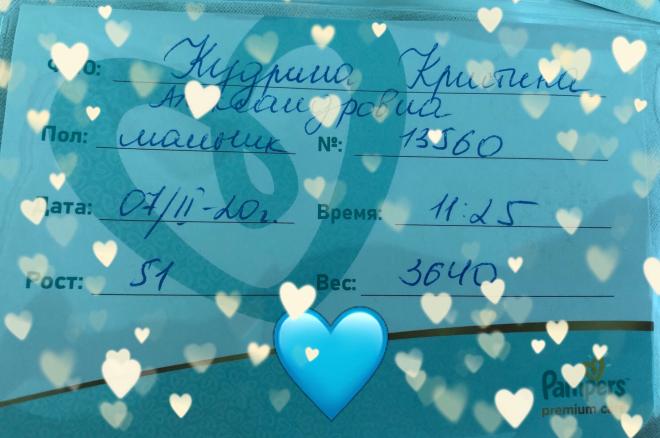 ФИО: Кудрина Кристина
Александровна
Пол: мальчик №: 13560
Дата: 07/II-20г. Время: 11:25
Рост: 51 Вес: 3640
Pampers
premium care